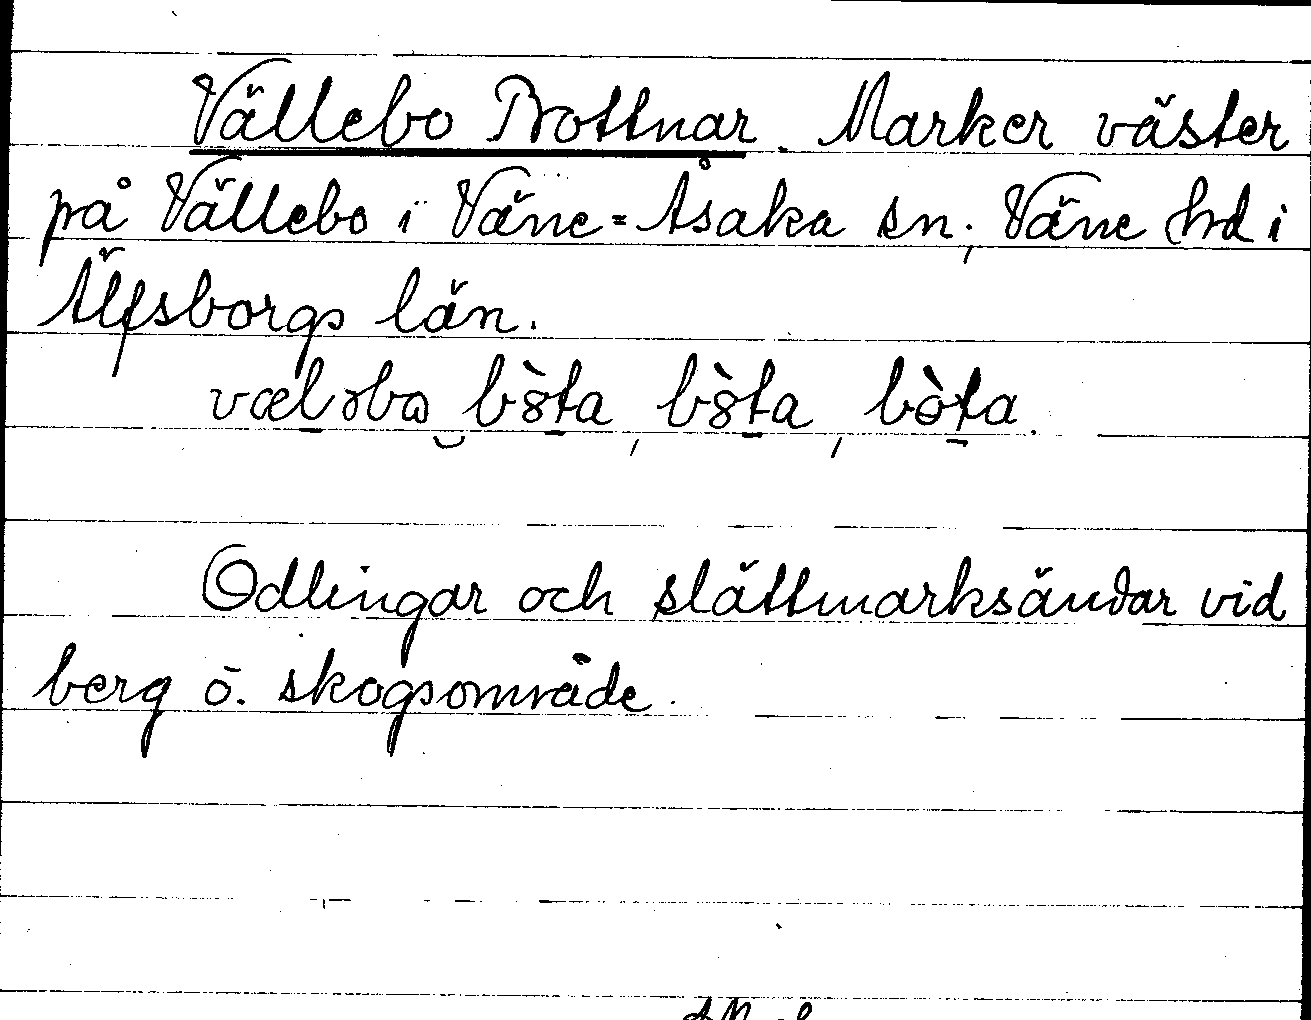 Vällebo Bottnar. Marker väster
på Vällebo i Väne-Åsaka sn, Väne hd i
Älfsborgs län.
Odlingar och slättmarksändar vid
berg o. skogsområde.